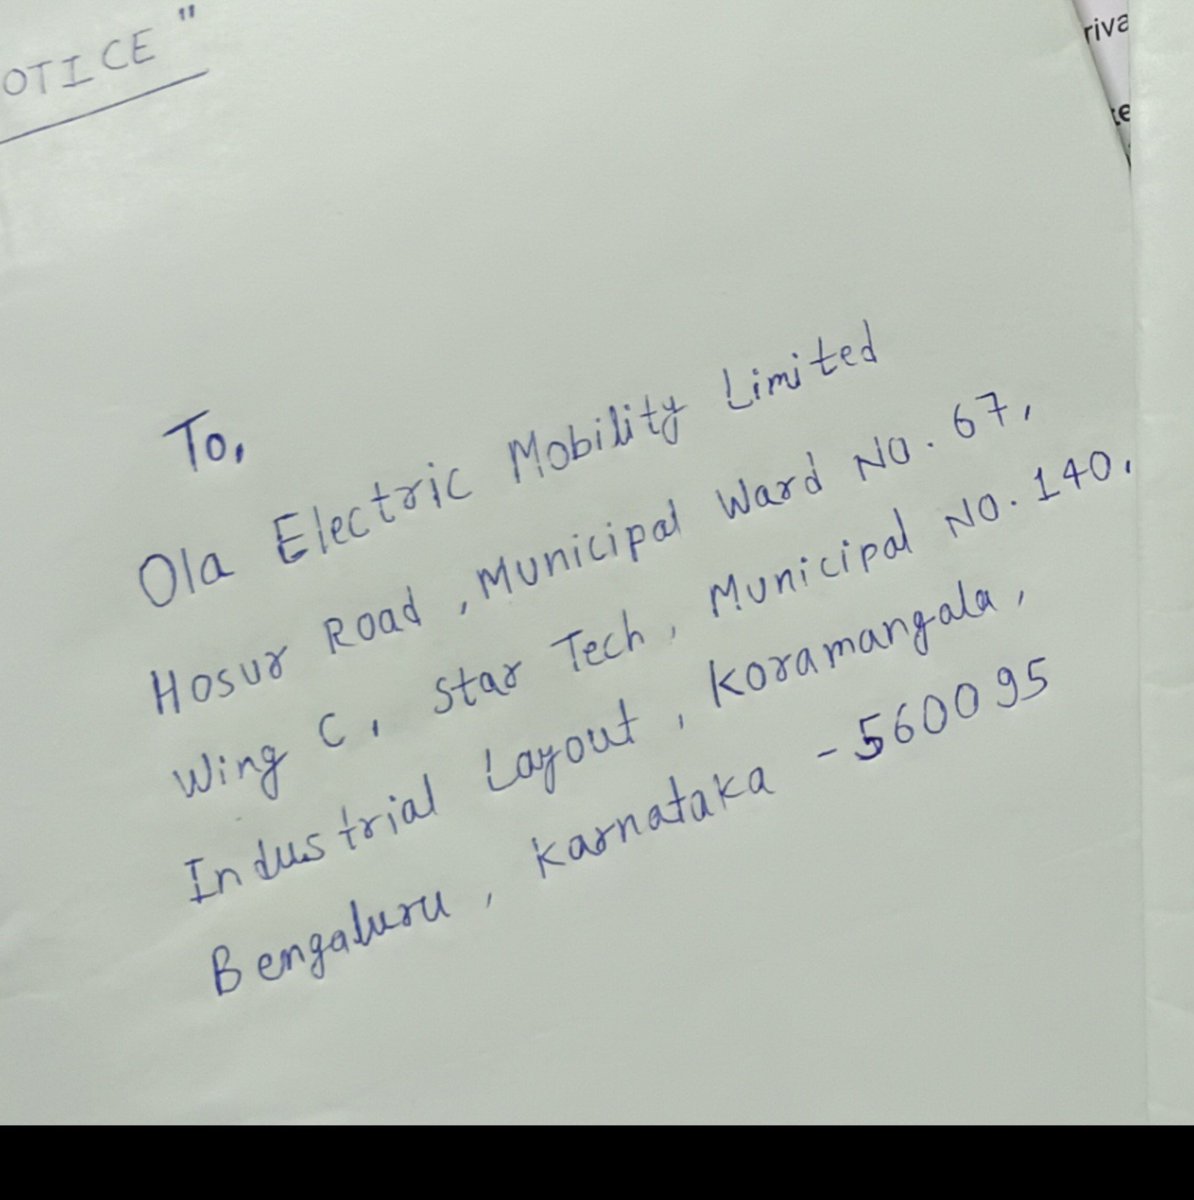 OTICE"
To,
Ola Electric Mobility Limited
Hosur Road, Municipal Ward No. 67,
Wing C, Star Tech, Municipal No. 140,
Industrial Layout, Koramangala,
Bengaluru, Karnataka - 560095